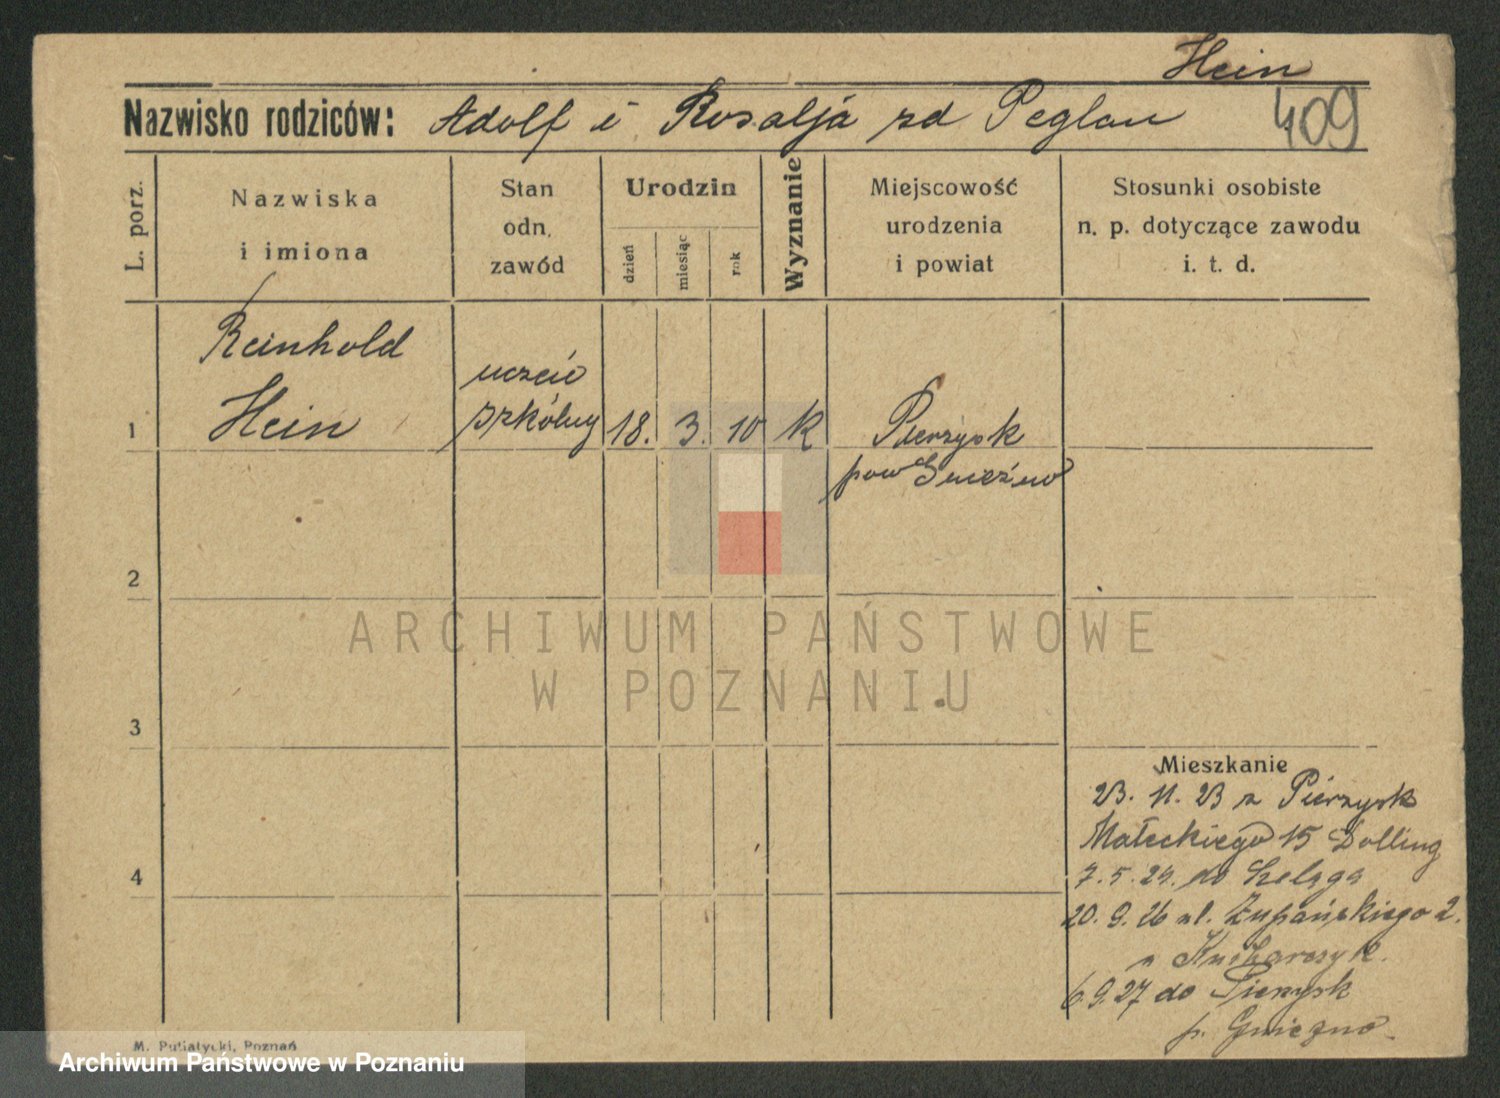 Hein
Nazwisko rodziców: Adolf i Rosalja zd Peglau
409
L. porz.
Nazwiska
i imiona
Stan
odn.
zawód
Urodzin
dzień
miesiąc
rok
Wyznanie
Miejscowość
urodzenia
i powiat
Stosunki osobiste
n. p. dotyczące zawodu
i. t. d.
1
Reinhold
Hein
uczeń
szkólny
18. 3. 10 K
Pierzysk
pow Gnieźno
2
ARCHIWUM PAŃSTWOWE
W POZNANIU
3
4
Mieszkanie
23. 11. 23 z Pierzysk
Małeckiego 15 Dolling
7. 5. 24. do Szeląga
20. 9. 26 ul. Żupańskiego 2.
u Kucharczyk.
6. 9. 27 do Pierzysk
p. Gniezno
M. Putiatycki, Poznań
Archiwum Państwowe w Poznaniu